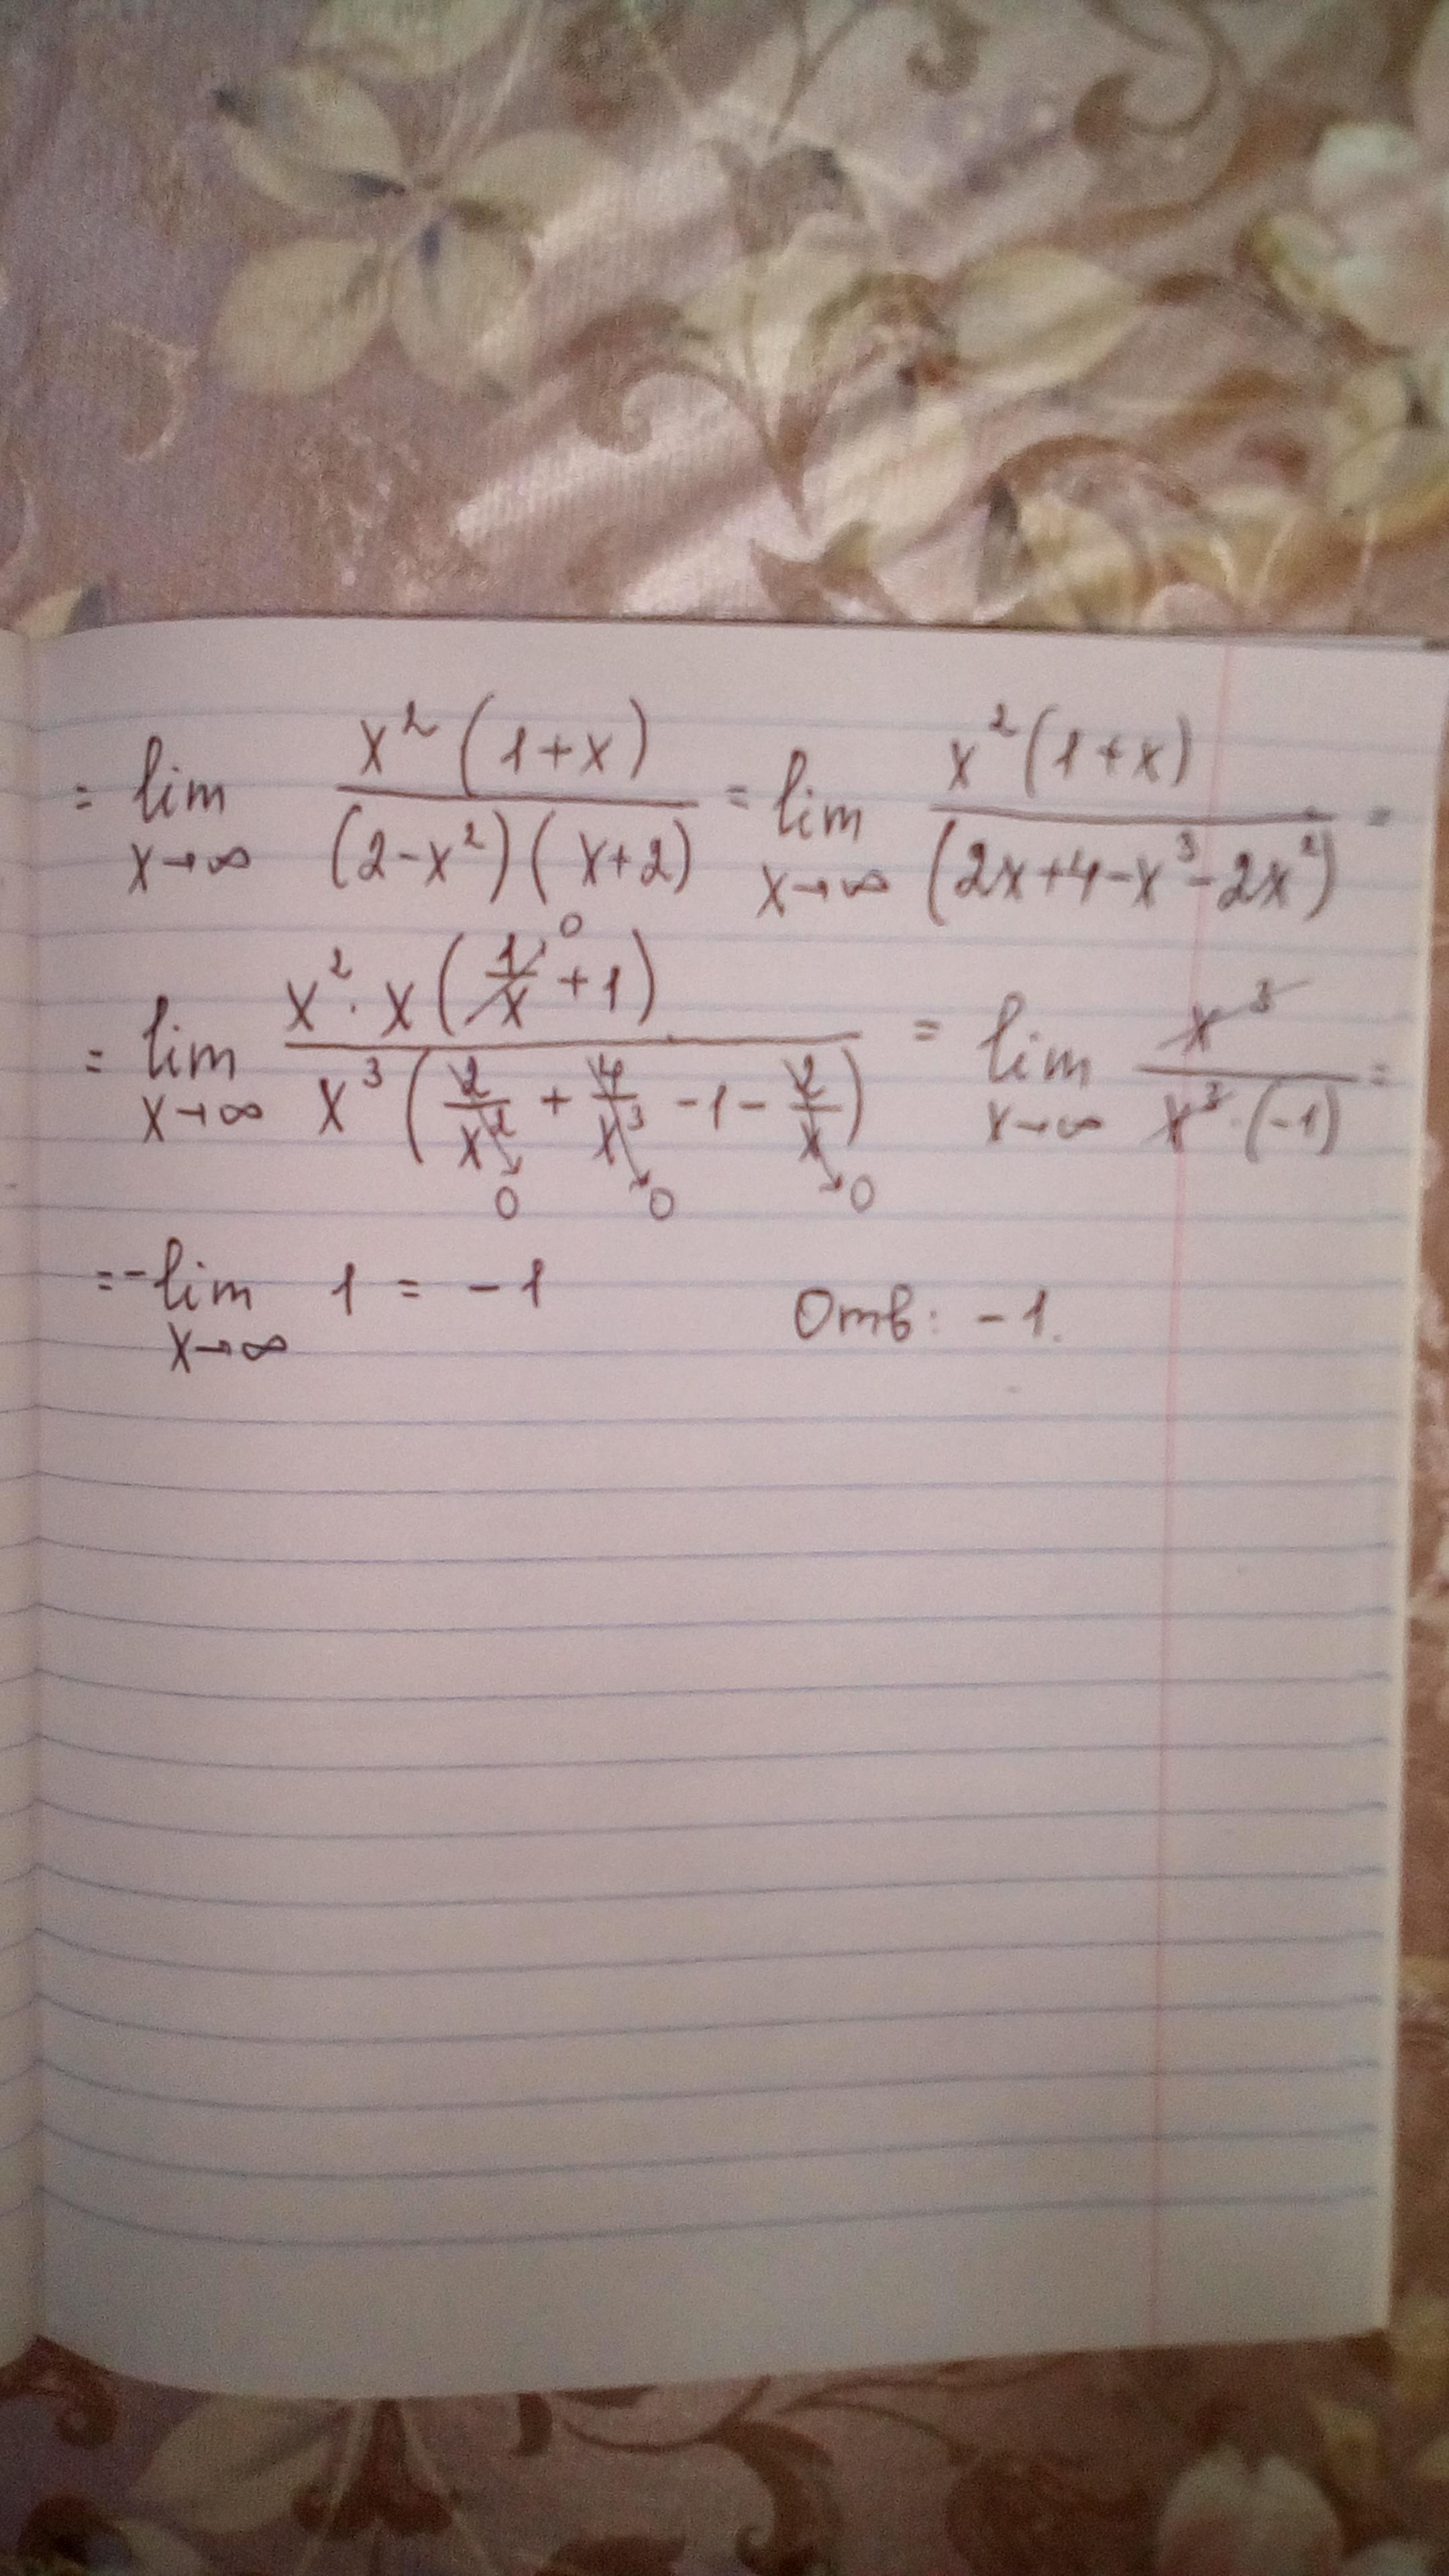 = lim x→∞ x²(1+x) / (2-x²)(x+2) = lim x→∞ x²(1+x) / (2x+4-x³-2x²) =
= lim x→∞ x²·x(1/x → 0 + 1) / x³(2/x² → 0 + 4/x³ → 0 - 1 - 2/x → 0) = lim x→∞ x³ / x³·(-1) =
= -lim x→∞ 1 = -1 Отв: -1.